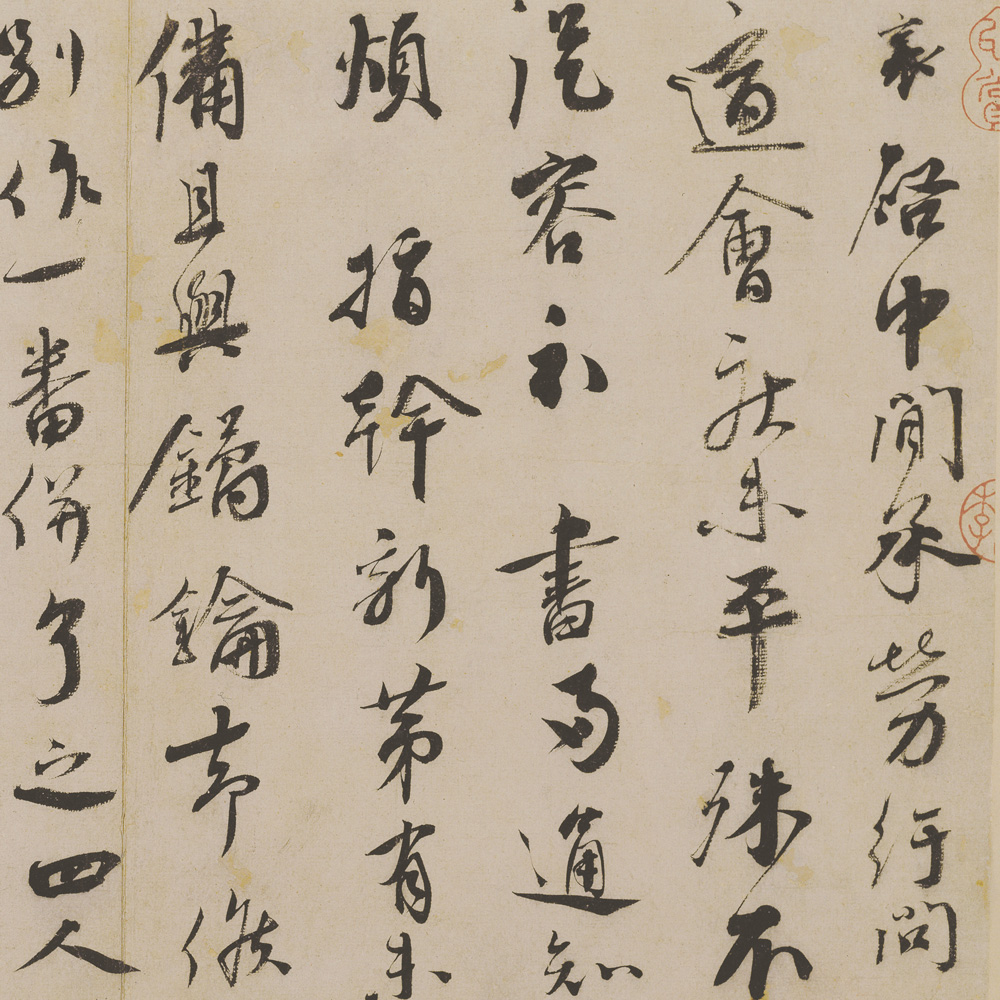 襄啓中間承勞行問
道會未平殊不
從容示書通知
煩指幹新第有未
備且與鐍鑰却候
別作一番併了之四人